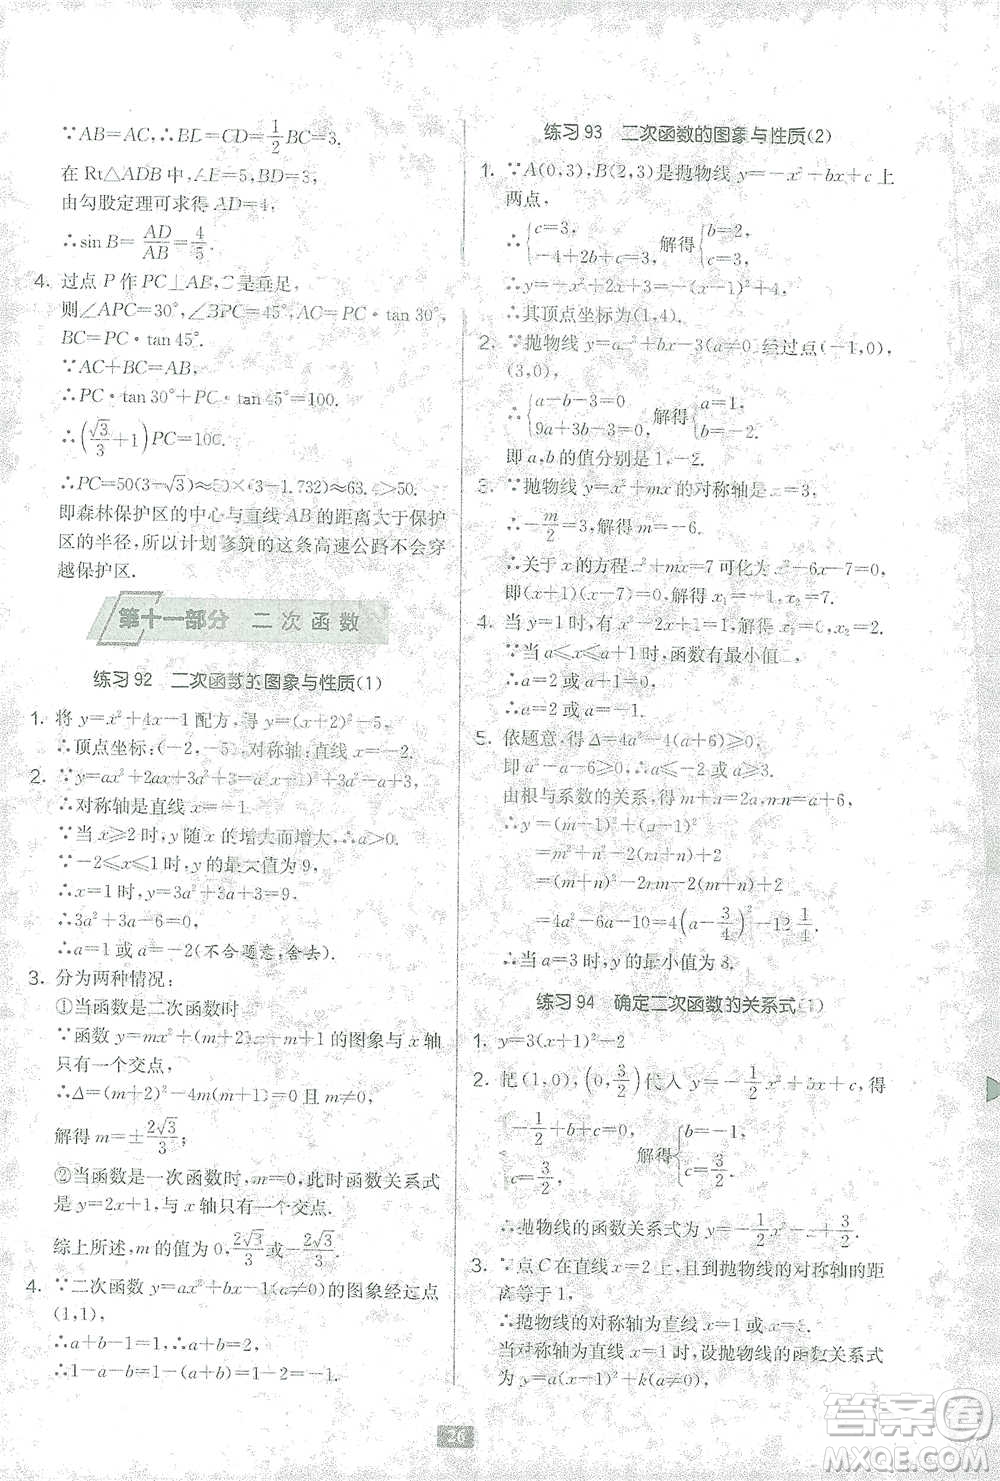 ∵AB=AC,∴BD=CD=1/2 BC=3.
在 Rt△ADB 中,AB=5,BD=3,
由勾股定理可求得 AD=4,
∴sin B=AD/AB=4/5.
4. 过点 P 作 PC⊥AB,C 是垂足,
则∠APC=30°,∠BPC=45°,AC=PC·tan 30°,
BC=PC·tan 45°.
∵AC+BC=AB,
∴PC·tan 30°+PC·tan 45°=100.
∴(√3/3+1)PC=100.
∴PC=50(3-√3)≈50×(3-1.732)≈63.4>50.
即森林保护区的中心与直线 AB 的距离大于保护
区的半径,所以计划修筑的这条高速公路不会穿
越保护区.
第十一部分 二次函数
练习 92 二次函数的图象与性质(1)
1. 将 y=x²+4x-1 配方,得 y=(x+2)²-5,
∴顶点坐标:(-2,-5),对称轴:直线 x=-2.
2. ∵y=ax²+2ax+3a²+3=a(x+1)²+3a²-a+3,
∴对称轴是直线 x=-1.
∵当 x≥2 时,y 随 x 的增大而增大,∴a>0.
∵-2≤x≤1 时,y 的最大值为 9,
∴x=1 时,y=3a²+3a+3=9.
∴3a²+3a-6=0.
∴a=1 或 a=-2(不合题意,舍去).
3. 分为两种情况:
①当函数是二次函数时,
∵函数 y=mx²+(m+2)x+1/2 m+1 的图象与 x 轴
只有一个交点,
∴Δ=(m+2)²-4m(1/2 m+1)=0 且 m≠0,
解得 m=±2√3/3;
②当函数是一次函数时,m=0,此时函数关系式
是 y=2x+1,与 x 轴只有一个交点.
综上所述,m 的值为 0,2√3/3 或-2√3/3.
4. ∵二次函数 y=ax²+bx-1(a≠0)的图象经过点
(1,1),
∴a+b-1=1.∴a+b=2.
∴1-a-b=1-(a+b)=1-2=-1.
练习 93 二次函数的图象与性质(2)
1. ∵A(0,3),B(2,3)是抛物线 y=-x²+bx+c 上
两点,
∴{c=3, -4+2b+c=3, 解得{b=2, c=3.
∴y=-x²+2x+3=-(x-1)²+4.
∴其顶点坐标为(1,4).
2. ∵抛物线 y=ax²+bx-3(a≠0)经过点(-1,0),
(3,0),
∴{a-b-3=0, 9a+3b-3=0, 解得{a=1, b=-2.
即 a,b 的值分别是 1,-2.
3. ∵抛物线 y=x²+mx 的对称轴是 x=3,
∴-m/2=3,解得 m=-6.
∴关于 x 的方程 x²+mx=7 可化为 x²-6x-7=0,
即(x+1)(x-7)=0,解得 x₁=-1,x₂=7.
4. 当 y=1 时,有 x²-2x+1=1,解得 x₁=0,x₂=2.
∵当 a≤x≤a+1 时,函数有最小值 1,
∴a=2 或 a+1=0.
∴a=2 或 a=-1.
5. 依题意,得 Δ=4a²-4(a+6)≥0,
即 a²-a-6≥0,∴a≤-2 或 a≥3.
由根与系数的关系,得 m+n=2a,mn=a+6.
∴y=(m-1)²+(n-1)²
=m²+n²-2(m+n)+2
=(m+n)²-2mn-2(m+n)+2
=4a²-6a-10=4(a-3/4)²-12 1/4.
∴当 a=3 时,y 的最小值为 8.
练习 94 确定二次函数的关系式(1)
1. y=3(x+1)²-2
2. 把(1,0),(0,3/2)代入 y=-1/2 x²+bx+c,得
{-1/2+b+c=0, c=3/2, 解得{b=-1, c=3/2.
∴抛物线的函数关系式为 y=-1/2 x²-x+3/2.
3. ∵点 C 在直线 x=2 上,且到抛物线的对称轴的距
离等于 1,
∴抛物线的对称轴为直线 x=1 或 x=3.
当对称轴为直线 x=1 时,设抛物线的函数关系式
为 y=a(x-1)²+k,
26
答案圈
MXQE.COM